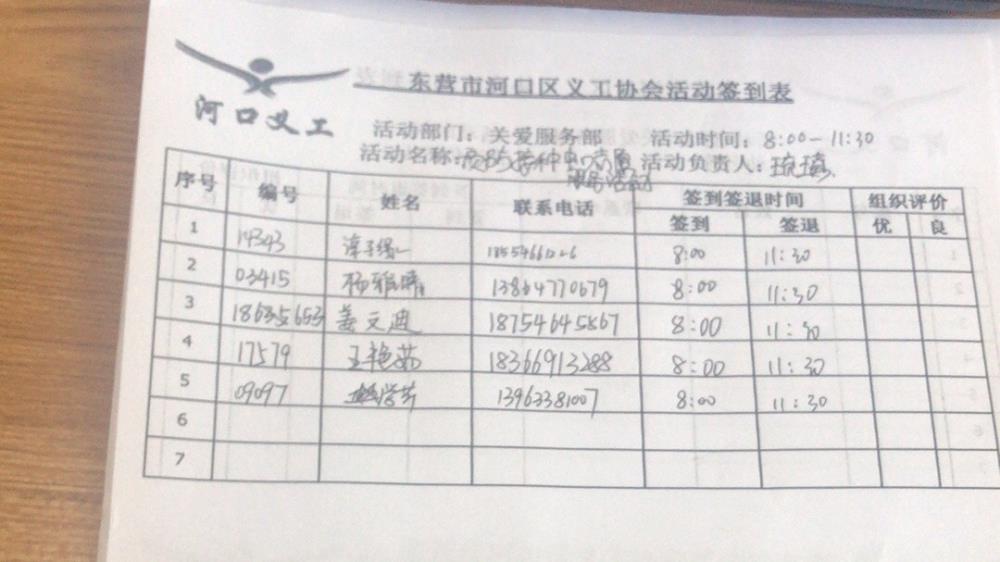 东营市河口区义工协会活动签到表
河口义工
活动部门：关爱服务部 活动时间：8:00-11:30
活动名称： 活动负责人：
序号 编号 姓名 联系电话 签到签退时间 组织评价
签到 签退 优 良
1 14343 8:00 11:30
2 03415 杨雅晴 13864770679 8:00 11:30
3 18635653 姜文迪 18754645867 8:00 11:30
4 17579 王艳茹 18366913288 8:00 11:30
5 09097 13963381007 8:00 11:30
6
7